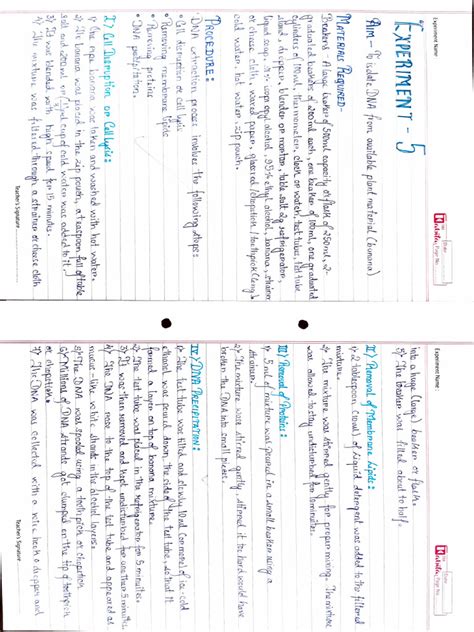 Experiment Name:
Date:
Page No.
EXPERIMENT - 5
AIM - To isolate DNA from available plant material (banana)
MATERIALS REQUIRED -
Beakers - A large beaker of 500ml capacity or flask of 250ml, 2-
graduated beakers of 200ml each, one beaker of 100ml, one graduated
cylinders of 100ml, thermometer, clock or watch, test tubes, test tube
stand, dropper, blender or mortar, table salt 2g, refrigerator,
liquid soap, isopropyl alcohol, 95% ethyl alcohol, banana, strainer
or cheese cloth, waxed paper, glass rod/chopstick/toothpick
cold water, hot water, zip pouch.
PROCEDURE:
DNA extraction process involves the following steps:
• Cell disruption or cell lysis
• Removing membrane lipids
• Removing proteins
• DNA precipitation.
I) Cell Disruption or Cell Lysis:
1) One ripe banana was taken and washed with hot water.
2) The banana was placed in the zip pouch, a teaspoon full of table
salt and 200ml or full cup of cold water was added to it.
3) It was blended with high speed for 15 minutes.
4) The mixture was filtered through a strainer or cheese cloth
Teacher's Signature
Experiment Name:
Date:
Page No.
into a huge (large) beaker or flask.
5) The beaker was filled about to half.
II) Removal of Membrane Lipids:
1) 2 tablespoon (30ml) of liquid detergent was added to the filtered
mixture.
2) The mixture was stirred gently for proper mixing. The mixture
was allowed to stay undisturbed for minutes.
III) Removal of Proteins:
1) 5ml of mixture was poured in a small beaker using a
strainer.
2) The mixture were stirred gently. Stirred it too hard would have
broken the DNA into small pieces.
IV) DNA PRECIPITATION:
1) The test tube was tilted and slowly 10ml (or more) of ice-cold
ethanol was poured down the side of the test tube, so that it
formed a layer on top of banana mixture.
2) The test tube was placed in the refrigerator for 5 minutes.
3) It was then removed and kept undisturbed for another 5 minute.
4) The DNA rose to the top of the test tube and appeared as
mucus-like white strands in the alcohol layers.
5) The DNA was spooled using a toothpick or chopstick
6) Millions of DNA strands got clumped on the tip of toothpick
or chopstick.
7) The DNA was collected with a wire hook a dropper and
Teacher's Signature